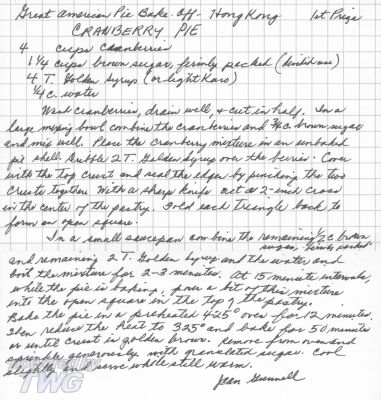 Great American Pie Bake-Off - Hong Kong     1st Prize
CRANBERRY PIE
4 cups cranberries
1 1/4 cups brown sugar, firmly packed (divided use)
4 T. Golden Syrup (or light Karo)
1/4 c. water
Wash cranberries, drain well, & cut in half. In a
large mixing bowl combine the cranberries and 3/4 c. brown sugar
and mix well. Place the cranberry mixture in an unbaked
pie shell. Dribble 2 T. Golden Syrup over the berries. Cover
with the top crust and seal the edges by pinching the two
crusts together. With a sharp knife cut a 2-inch cross
in the center of the pastry. Fold each triangle back to
form an open square.
In a small saucepan combine the remaining 1/2 c. brown
sugar, firmly packed
and remaining 2 T. Golden Syrup and the water and
boil the mixture for 2-3 minutes. At 15 minute intervals,
while the pie is baking, pour a bit of this mixture
into the open square in the top of the pastry.
Bake the pie in a preheated 425° oven for 12 minutes.
Then reduce the heat to 325° and bake for 50 minutes
or until crust is golden brown. Remove from oven and
sprinkle generously with granulated sugar. Cool
slightly and serve while still warm.
Jean Gunnell
TWG